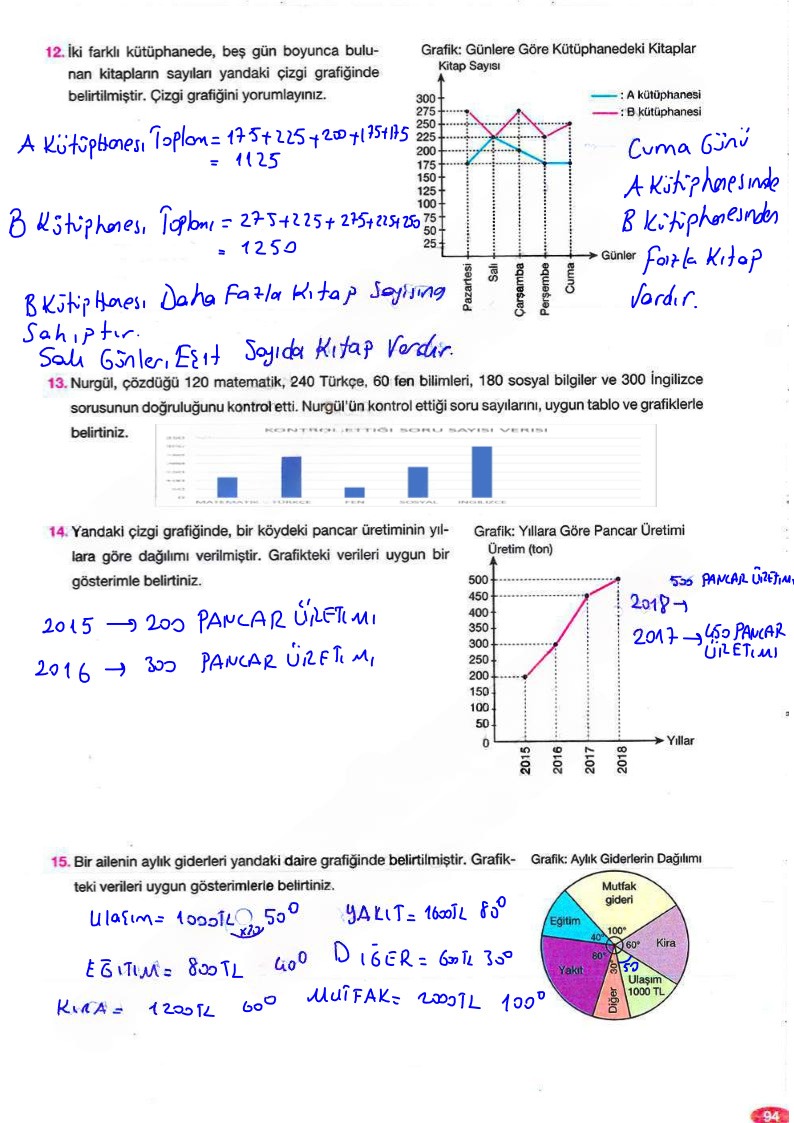 12. İki farklı kütüphanede, beş gün boyunca bulu-
nan kitapların sayıları yandaki çizgi grafiğinde
belirtilmiştir. Çizgi grafiğini yorumlayınız.
Grafik: Günlere Göre Kütüphanedeki Kitaplar
Kitap Sayısı
300
275
250
225
200
175
150
125
100
75
50
25
Pazartesi
Salı
Çarşamba
Perşembe
Cuma
Günler
: A kütüphanesi
: B kütüphanesi
A Kütüphanesi Toplam = 175+225+200+175+175
= 1125
B Kütüphanesi Toplamı = 275+225+275+225+250
= 1250
B Kütüphanesi Daha Fazla Kitap Sayısına
Sahiptir.
Salı Günleri Eşit Sayıda Kitap Vardır.
Cuma Günü
A Kütüphanesinde
B Kütüphanesinden
Fazla Kitap
Vardır.
13. Nurgül, çözdüğü 120 matematik, 240 Türkçe, 60 fen bilimleri, 180 sosyal bilgiler ve 300 İngilizce
sorusunun doğruluğunu kontrol etti. Nurgül'ün kontrol ettiği soru sayılarını, uygun tablo ve grafiklerle
belirtiniz.
KONTROL ETTİĞİ SORU SAYISI VERİSİ
MATEMATİK TÜRKÇE FEN SOSYAL İNGİLİZCE
14. Yandaki çizgi grafiğinde, bir köydeki pancar üretiminin yıl-
lara göre dağılımı verilmiştir. Grafikteki verileri uygun bir
gösterimle belirtiniz.
Grafik: Yıllara Göre Pancar Üretimi
Üretim (ton)
500
450
400
350
300
250
200
150
100
50
0
2015
2016
2017
2018
Yıllar
2015 → 200 PANCAR ÜRETİMİ
2016 → 300 PANCAR ÜRETİMİ
500 PANCAR ÜRETİMİ
2018 →
2017 → 450 PANCAR
ÜRETİMİ
15. Bir ailenin aylık giderleri yandaki daire grafiğinde belirtilmiştir. Grafik-
teki verileri uygun gösterimlerle belirtiniz.
Grafik: Aylık Giderlerin Dağılımı
Mutfak
gideri
Eğitim
100°
40°
60°
Kira
80°
Yakıt
30°
50
Ulaşım
1000 TL
Diğer
Ulaşım = 1000TL 50°
x20
YAKIT = 1600TL 80°
EĞİTİM = 800TL 40°
DİĞER = 600TL 30°
KİRA = 1200TL 60°
MUTFAK = 2000TL 100°
94